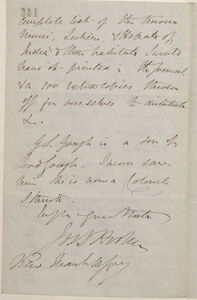 complete list of the known
Musci, Lichens, & Hepat of
India & their habitats I would
have it printed: the journal
& a few extra copies thrown
off for ourselves to distribute
&.
G.S. Gough is a son of
Lord Gough. I never saw
him he is now a Colonel
I think.
Jos D Hooker
Kew